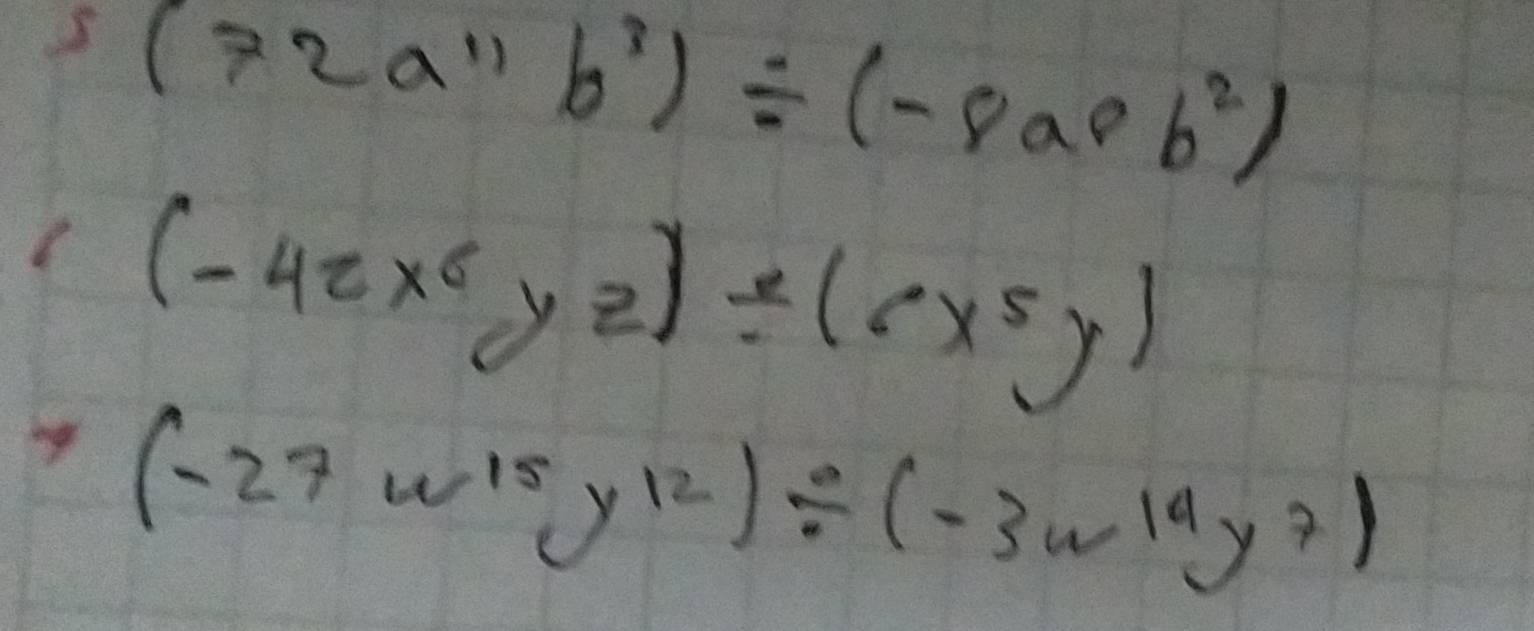 5 (72a¹¹ b³) ÷ (-8a⁸ b²)
6 (-42x⁶ y z) ÷ (6x⁵ y)
7 (-27 w¹⁵ y¹²) ÷ (-3w¹⁴ y⁷)